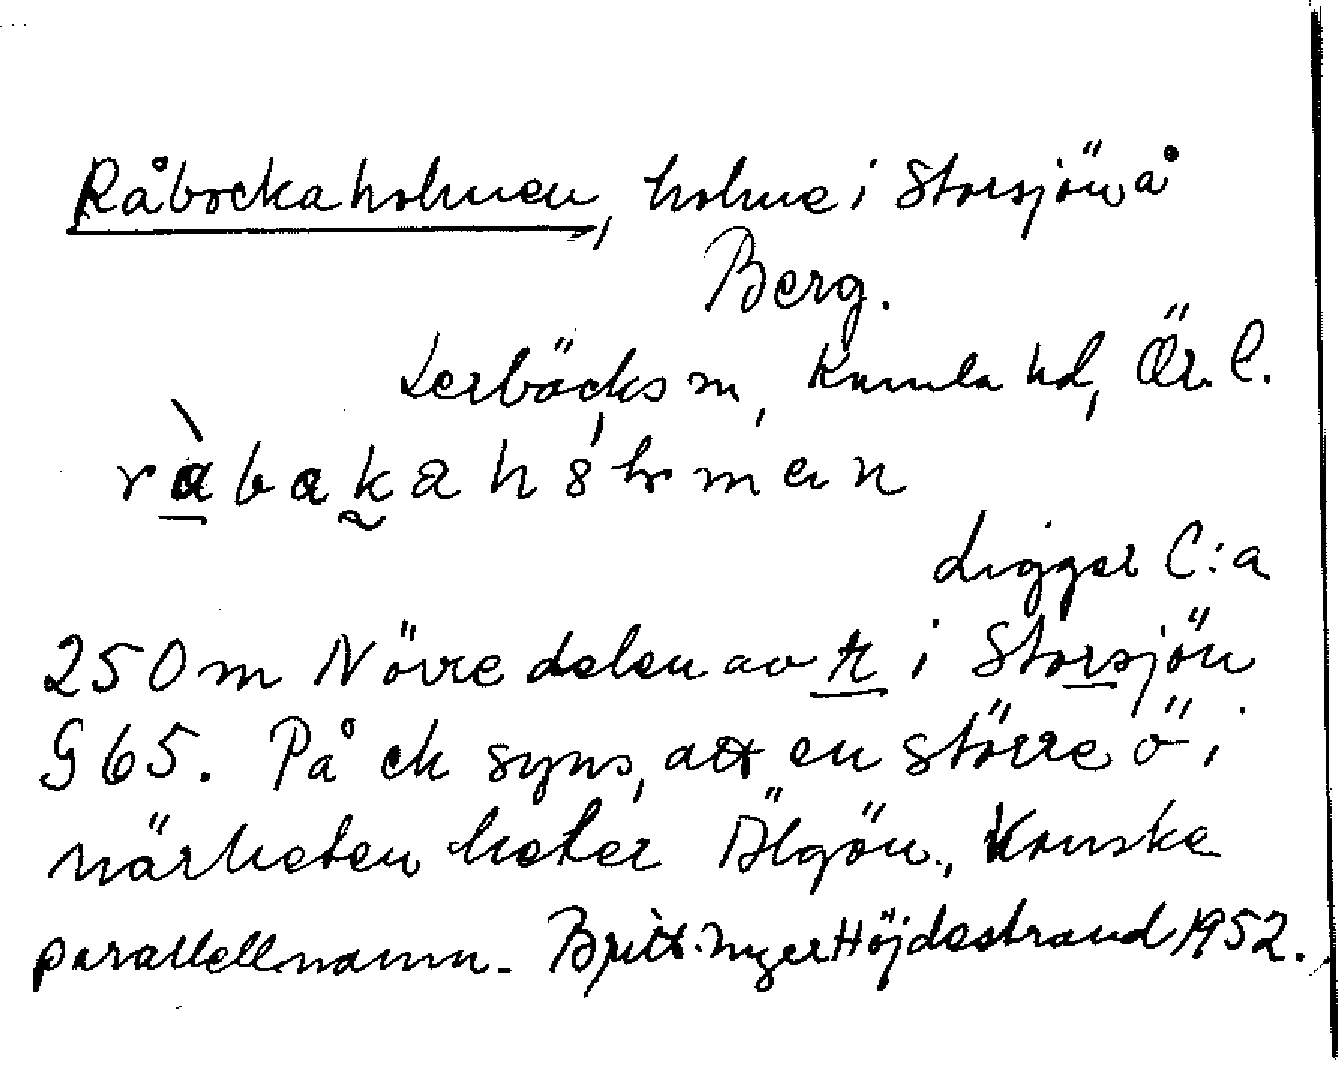 Råbockaholmen, holme i Storsjön å
Berg.
Lerbäcks sn, Kumla hd, Ör. l.
Ligger C:a
250 m N övre delen av tr i Storsjön
G65. På ek syns, att en större ö i
närheten heter Älgön., Kanske
parallellnamn. Britt Inger Höjdestrand 1952.